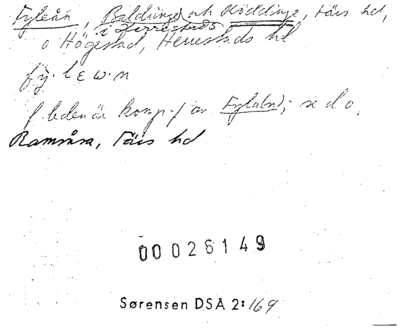 Fyleån, Baldringe och Köddinge, Färs hd,
i Herrestads
o Högestad, Herrestads hd
fy·lεw·n
f. leden är komp-f av Fylabo; se d o,
Ramsåsa, Färs hd
00026149
Sørensen DSA 2:169